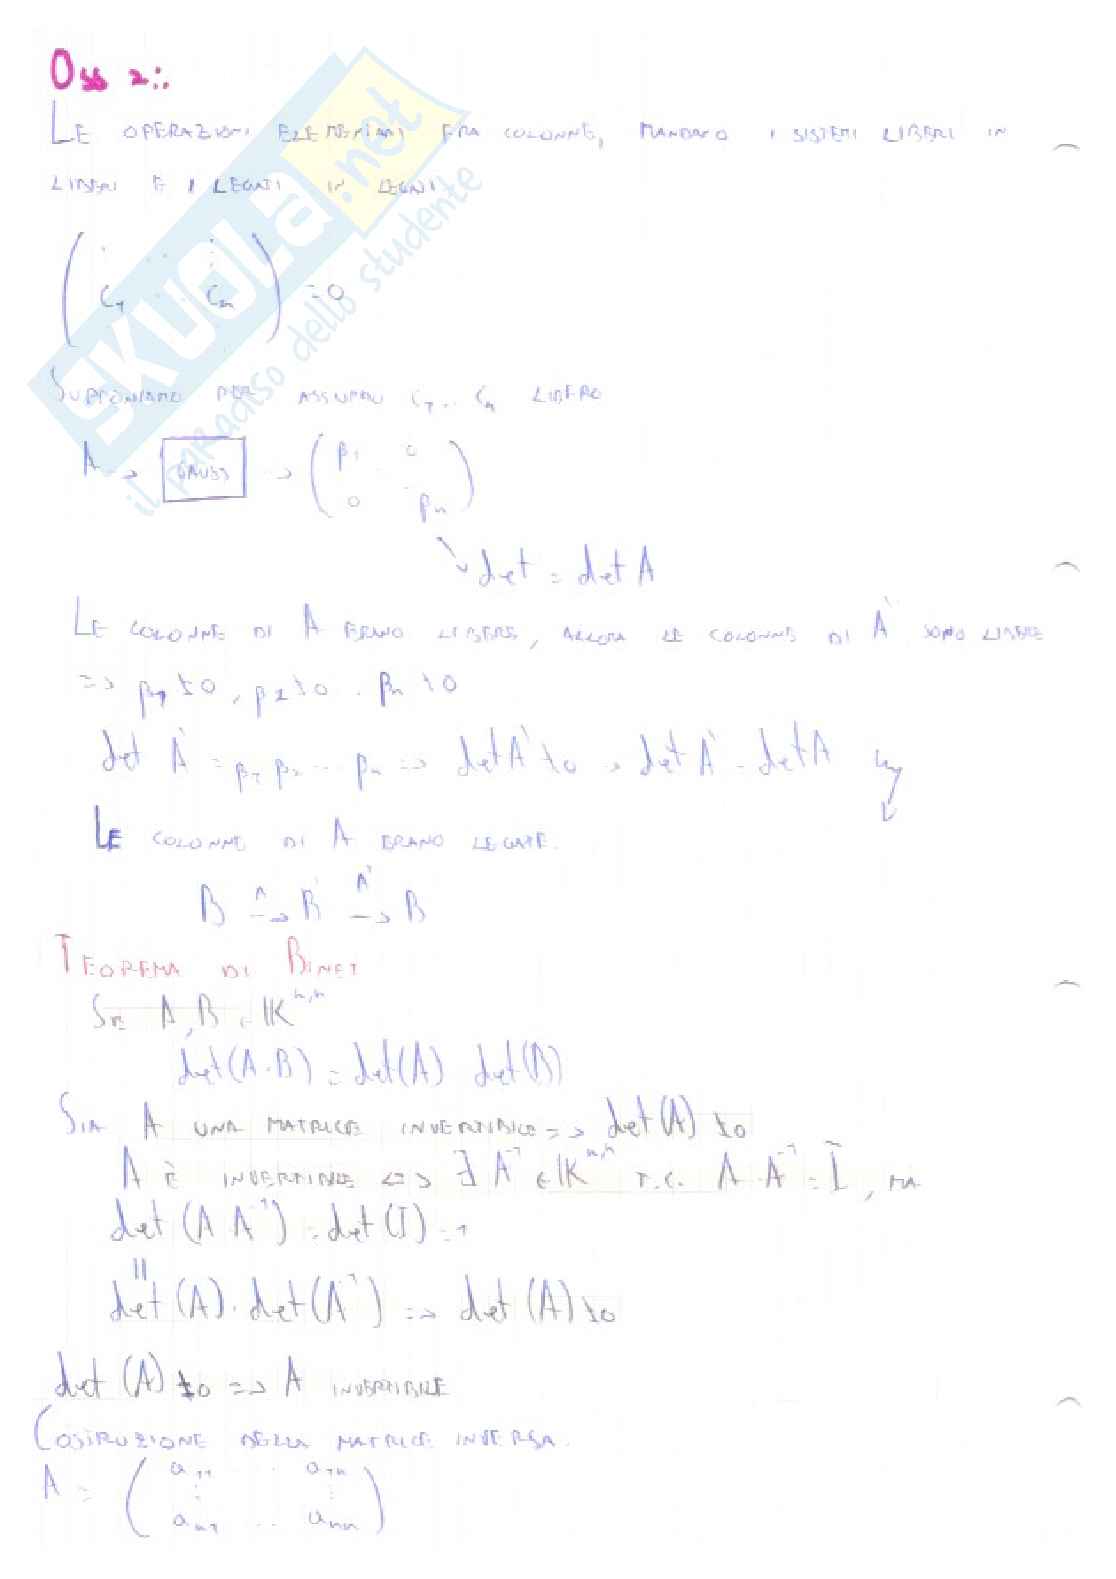 Oss 2:
LE OPERAZIONI ELEMENTARI FRA COLONNE, MANDANO I SISTEMI LIBERI IN
LIBERI E I LEGATI IN LEGATI
SKUOLA.net
il paradiso dello studente
( C1 ... Cn ) = 0
SUPPONIAMO PER ASSURDO C1 .. Cn LIBERO
A → GAUSS → ( β1 0
0 βn )
↘ det = det A
LE COLONNE DI A ERANO LIBERE, ALLORA LE COLONNE DI A' SONO LIBERE
=> β1 ≠ 0, β2 ≠ 0 . βn ≠ 0
det A' = β1 β2 ... βn => det A' ≠ 0 → det A' = det A
LE COLONNE DI A ERANO LEGATE.
B →^A B' →^A' B
TEOREMA DI BINET
SE A, B ∈ K^n,n
det(A·B) = det(A) det(B)
SIA A UNA MATRICE INVERTIBILE => det(A) ≠ 0
A È INVERTIBILE <=> ∃ A^-1 ∈ K^n,n T.C. A·A^-1 = I, MA
det(A A^-1) = det(I) = 1
||
det(A)·det(A^-1) => det(A) ≠ 0
det(A) ≠ 0 => A INVERTIBILE
COSTRUZIONE DELLA MATRICE INVERSA.
A = ( a11 ... a1n
⋮ ⋮
an1 ... ann )